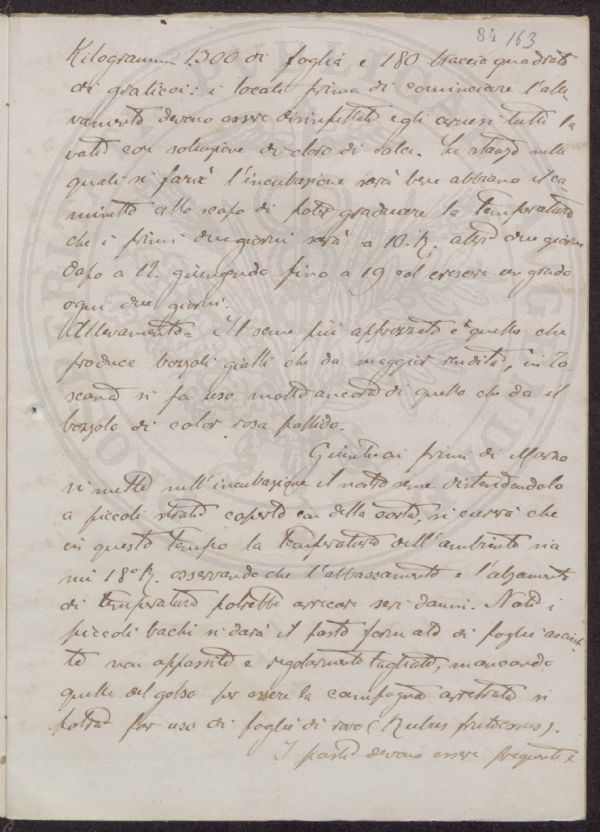 84 163
Kilogrammi 1300 di foglia e 180 braccia quadrate
di graticci: i locali prima di cominciare l'alle
vamento devono essere disinfettati e gli arnesi tutti la
vati con soluzione di cloro di calce. Le stanze nelle
quali si farà l'incubazione sarà bene abbiano il ca
minetto allo scopo di poter graduare la temperatura
che i primi due giorni sarà a 10. R. altri due giorni
dopo a 12. giungendo fino a 19 col crescere un grado
ogni due giorni.
Allevamento = Il seme più apprezzato è quello che
produce bozzoli gialli che da maggior rendita, in To
scana si fa uso molto ancora di quello che da il
bozzolo di color rosa pallido.
Giunti ai primi di Marzo
si mette nell'incubazione il nostro seme distendendolo
a piccoli strati coperto con della carta, si curerà che
in questo tempo la temperatura dell'ambiente sia
mi 18° R. osservando che l'abbassamento e l'alzamento
di temperatura potrebbe arrecare seri danni. Nati i
piccoli bachi si darà il pasto formato di foglie asciut
te non appassite e regolarmente tagliate, mancando
quelle del gelso per essere la campagna arretrata si
potrà far uso di foglie di rovo (Rubus fruticosus).
I pasti devono essere frequenti e